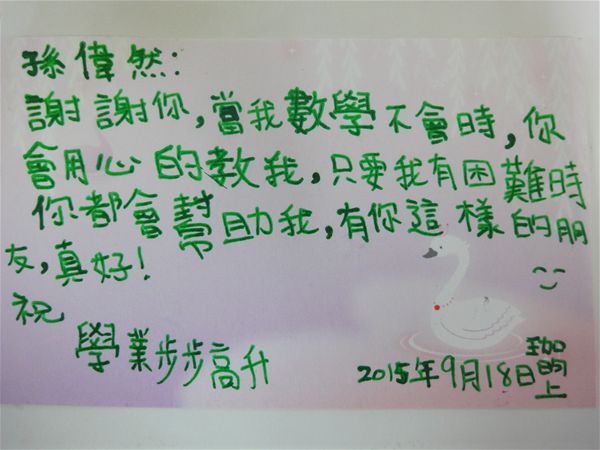 孫偉然:
謝謝你,當我數學不會時,你
會用心的教我,只要我有困難時
你都會幫助我,有你這樣的朋
友,真好!
祝
學業步步高升
2015年9月18日 珈昀上